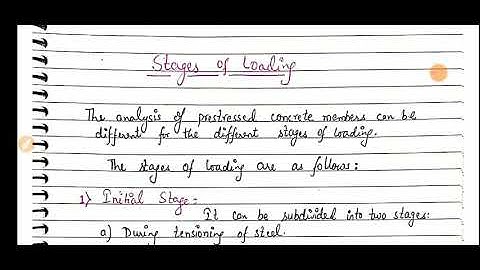 Stages of Loading
The analysis of prestressed concrete members can be
different for the different stages of loading.
The stages of loading are as follows:
1) Initial Stage:
It can be subdivided into two stages:
a) During tensioning of steel.